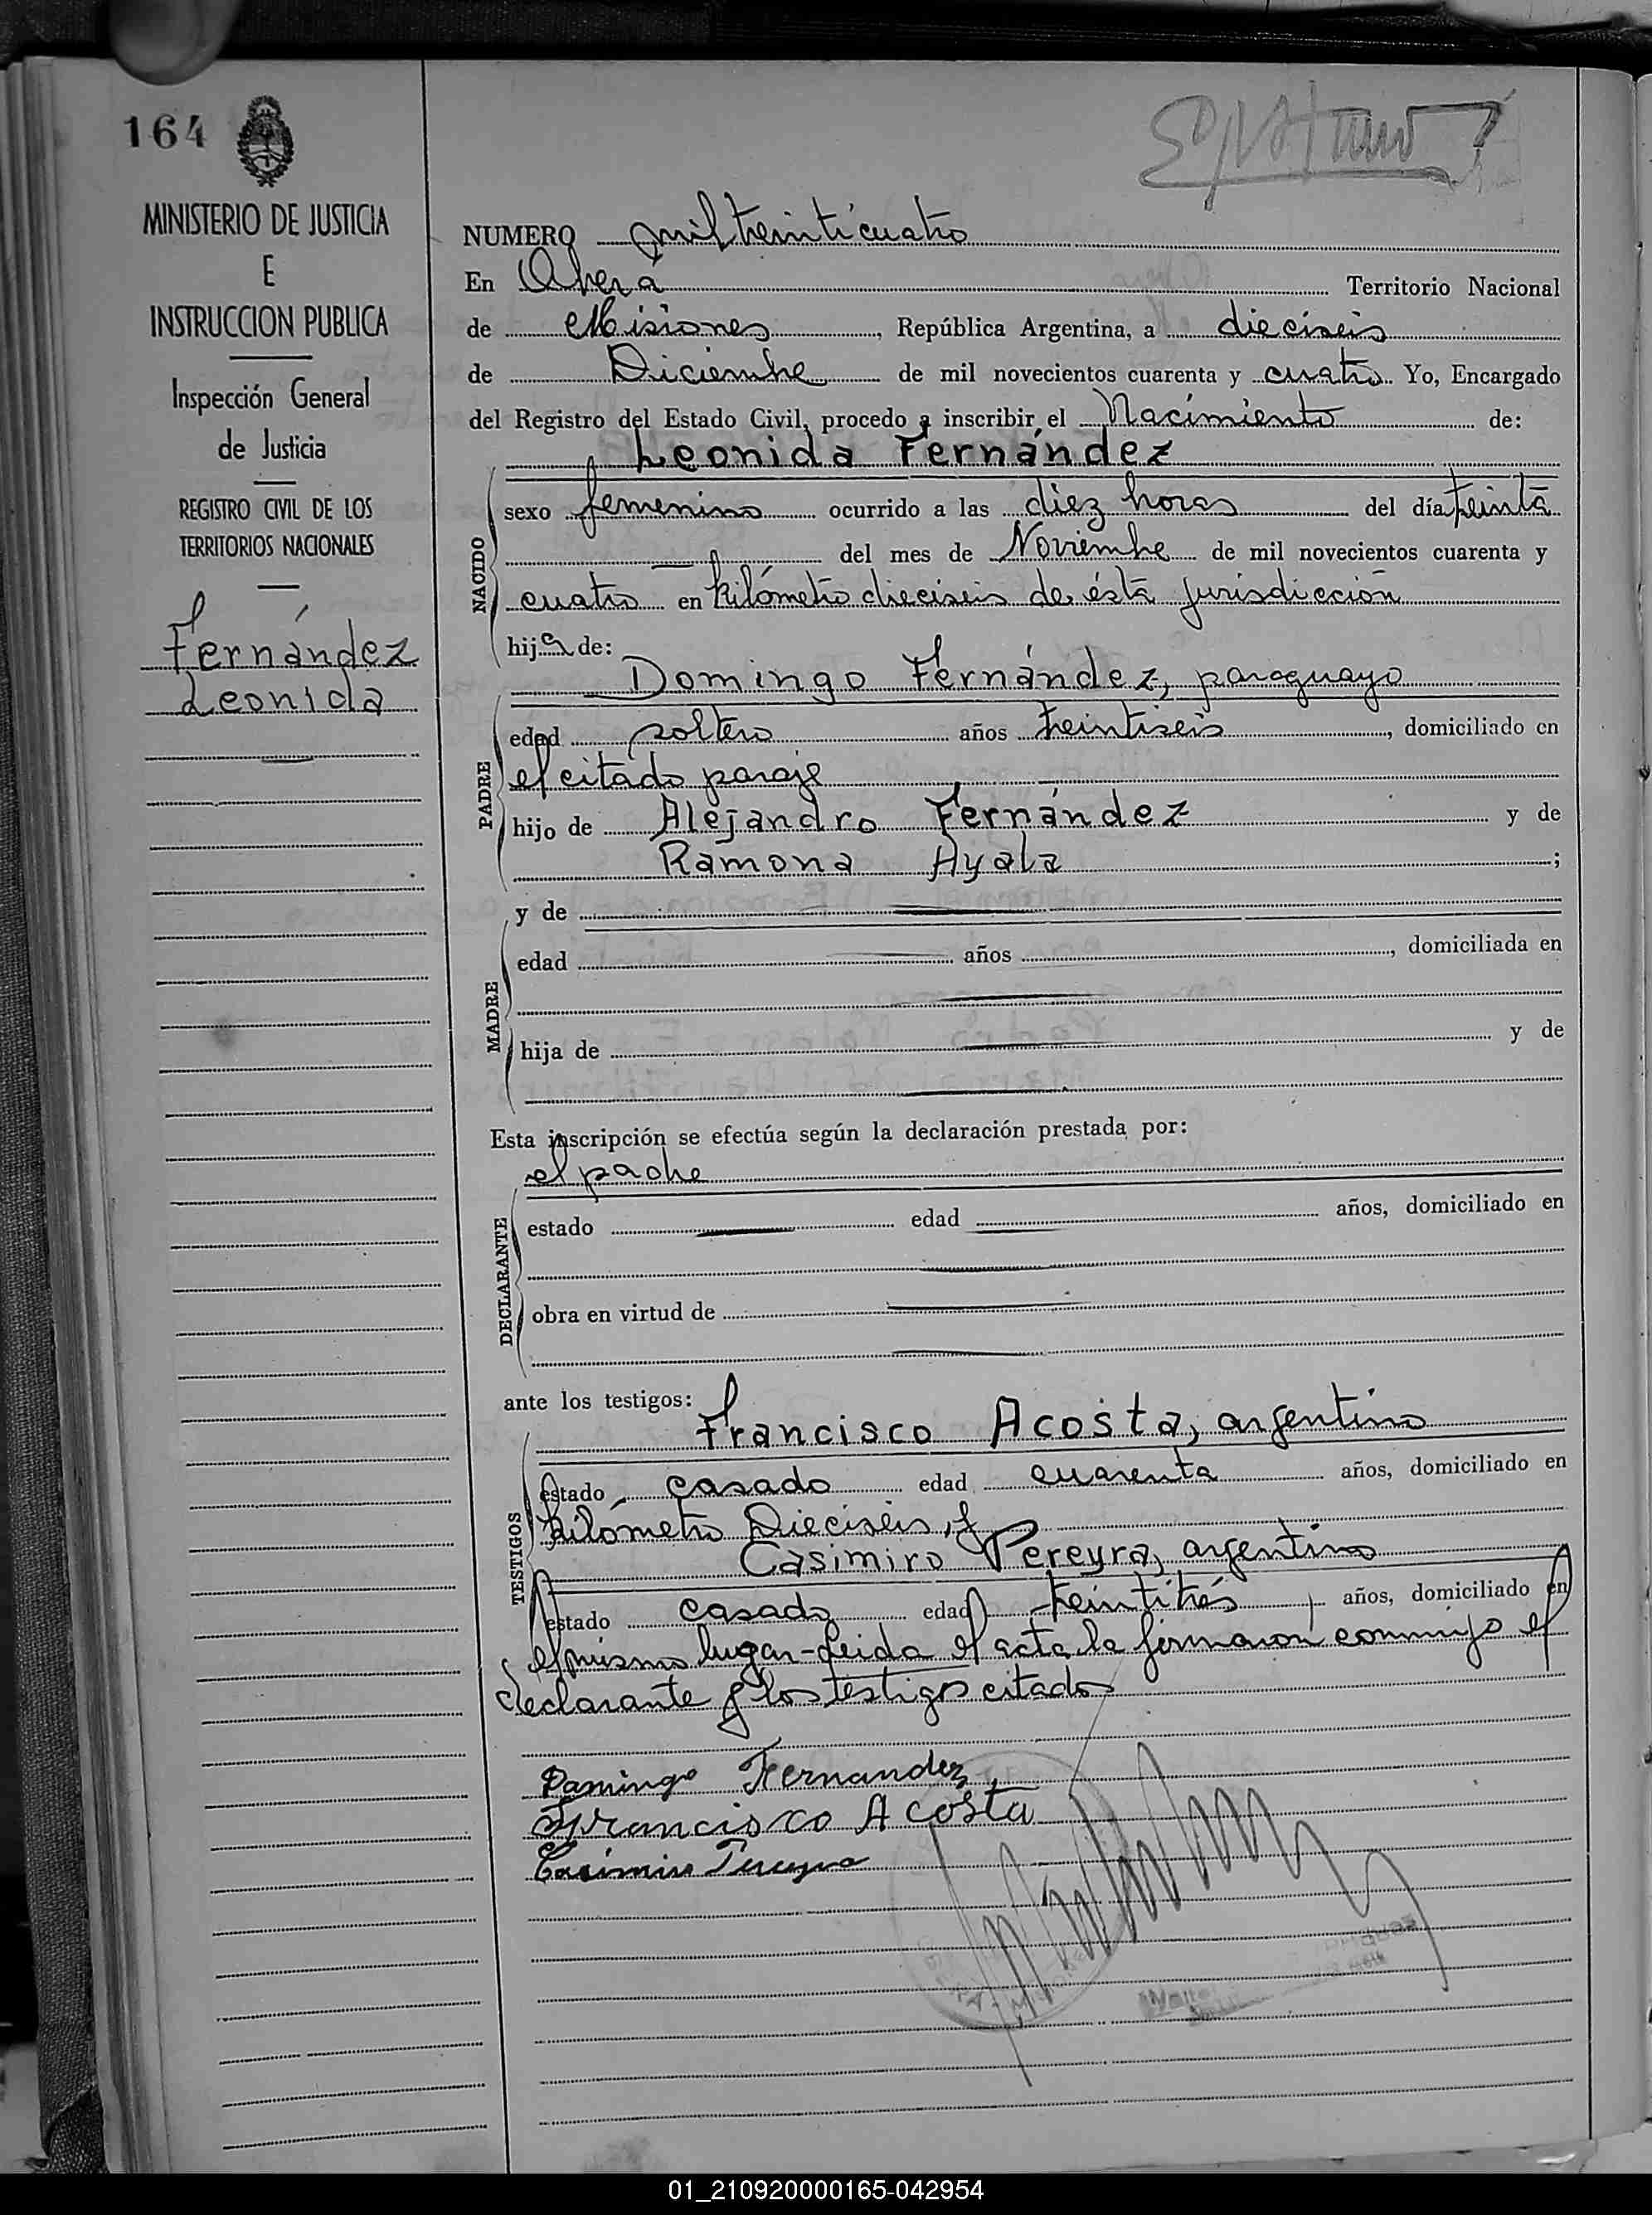 164
MINISTERIO DE JUSTICIA
E
INSTRUCCION PUBLICA
Inspección General
de Justicia
REGISTRO CIVIL DE LOS
TERRITORIOS NACIONALES
Fernández
Leonida
NUMERO mil treinticuatro
En Oberá Territorio Nacional
de Misiones, República Argentina, a dieciseis
de Diciembre de mil novecientos cuarenta y cuatro Yo, Encargado
del Registro del Estado Civil, procedo a inscribir el Nacimiento de:
Leonida Fernández
NACIDO
sexo femenino ocurrido a las diez horas del día treinta
del mes de Noviembre de mil novecientos cuarenta y
cuatro en kilómetro dieciseis de ésta jurisdicción
hija de:
Domingo Fernández, paraguayo
PADRE
edad soltero años treintiseis, domiciliado en
el citado paraje
hijo de Alejandro Fernández y de
Ramona Ayala ;
y de
MADRE
edad años , domiciliada en
hija de y de
Esta inscripción se efectúa según la declaración prestada por:
el padre
DECLARANTE
estado edad años, domiciliado en
obra en virtud de
ante los testigos:
Francisco Acosta, argentino
TESTIGOS
estado casado edad cuarenta años, domiciliado en
kilómetro Dieciseis, y
Casimiro Pereyra, argentino
estado casado edad treintitrés años, domiciliado en
el mismo lugar-Leida el acta la firmaron conmigo el
declarante y los testigos citados
Domingo Fernandez,
Francisco Acosta
Casimiro Pereyra
01_210920000165-042954